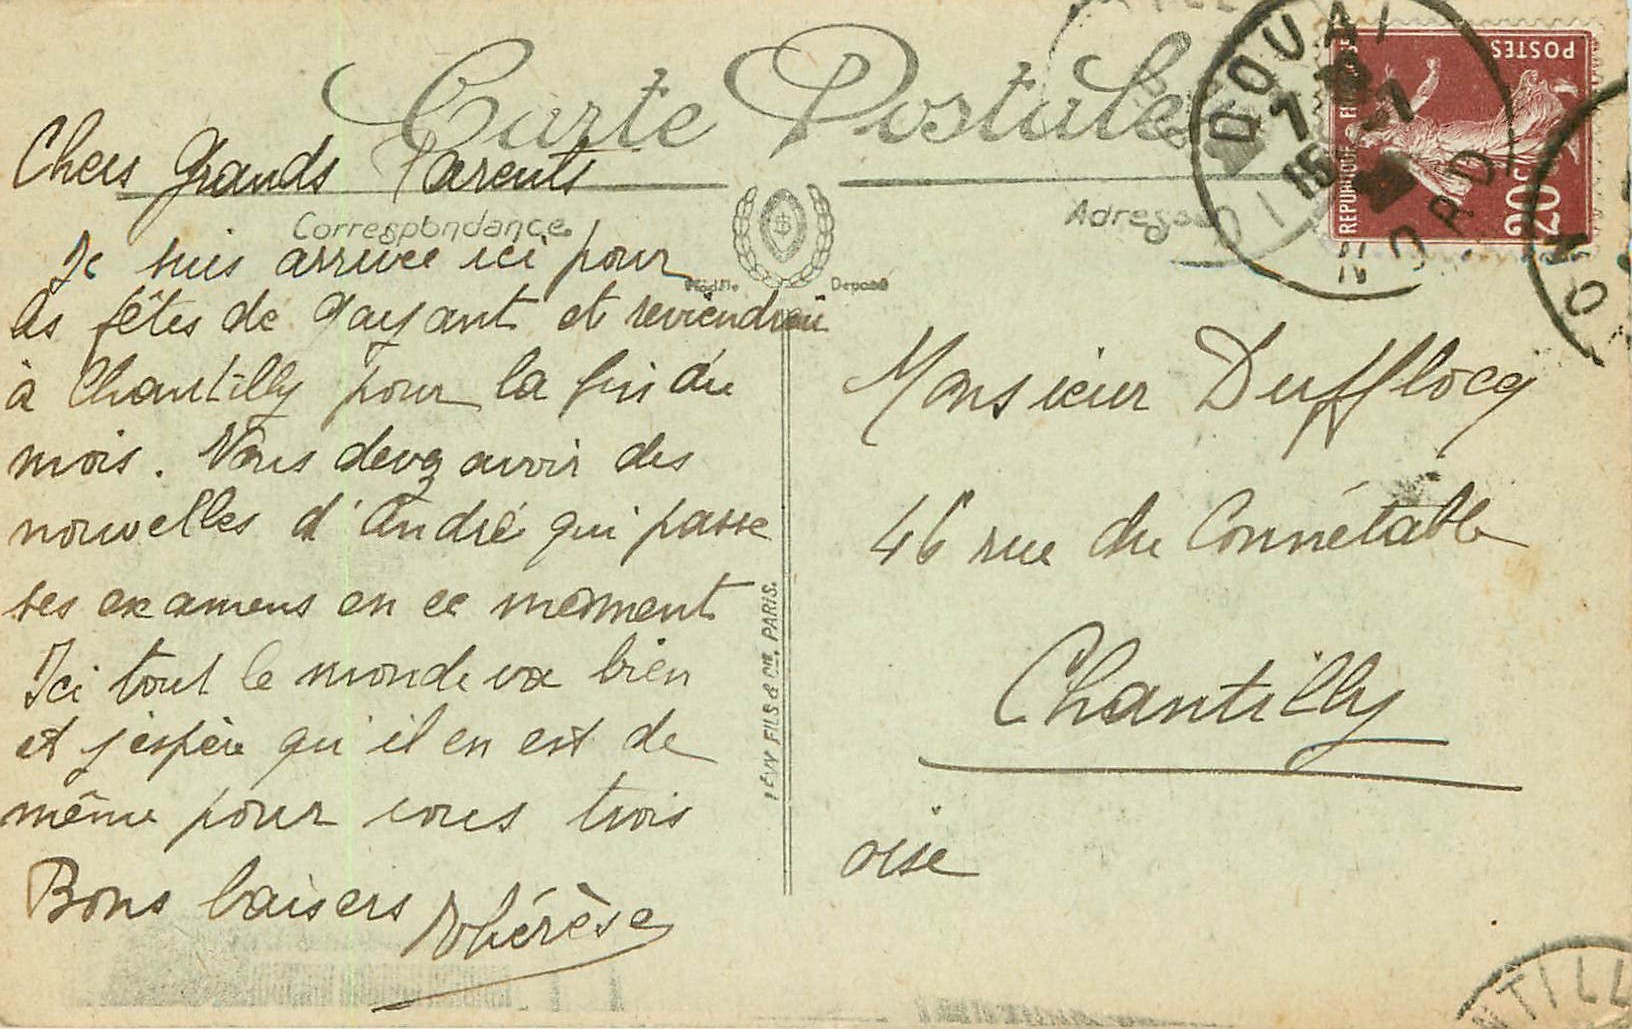 Carte Postale
Correspondance
Adresse
Modèle Déposé
Chers Grands Parents
Je suis arrivée ici pour
les fêtes de Gayant et reviendrai
à Chantilly pour la fin du
mois. Vous devez avoir des
nouvelles d'André qui passe
ses examens en ce moment
Ici tout le monde va bien
et j'espère qu'il en est de
même pour vous trois
Bons baisers Thérèse
LÉVY FILS & Cie, PARIS.
DOUAI
7 - 7
NORD
POSTES
REPUBLIQUE FRANÇAISE
20c
Monsieur Dufflocq
46 rue du Connétable
Chantilly
oise
NTILL